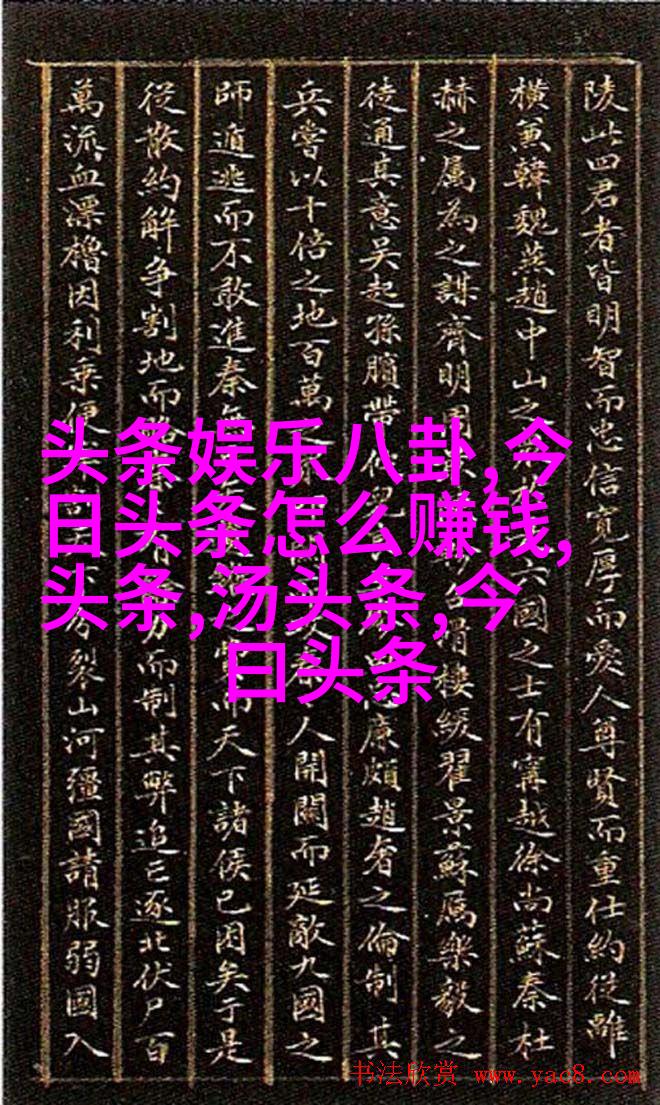 陵此四君者皆明智而忠信寬厚而愛人尊賢而重仕約從離
橫兼韓魏燕趙中山之六國之士有甯越徐尚蘇秦杜
赫之屬為之謀齊明周召滑樓緩翟景蘇厲樂毅之
徒通其意吳起孫臏帶佗兒廉頗趙奢之倫制其
兵嘗以十倍之地百萬人開關而延敵九國之
師遁逃而不敢進秦無而天下諸侯已困矣于是
從散約解爭割地而賂力而制其弊追亡逐北伏尸百
萬流血漂櫓因利乘便分裂山河彊國請服弱國入
头条娱乐八卦,今
日头条怎么赚钱,
头条,汤头条,今
日头条
书法欣赏 www.yac8.com